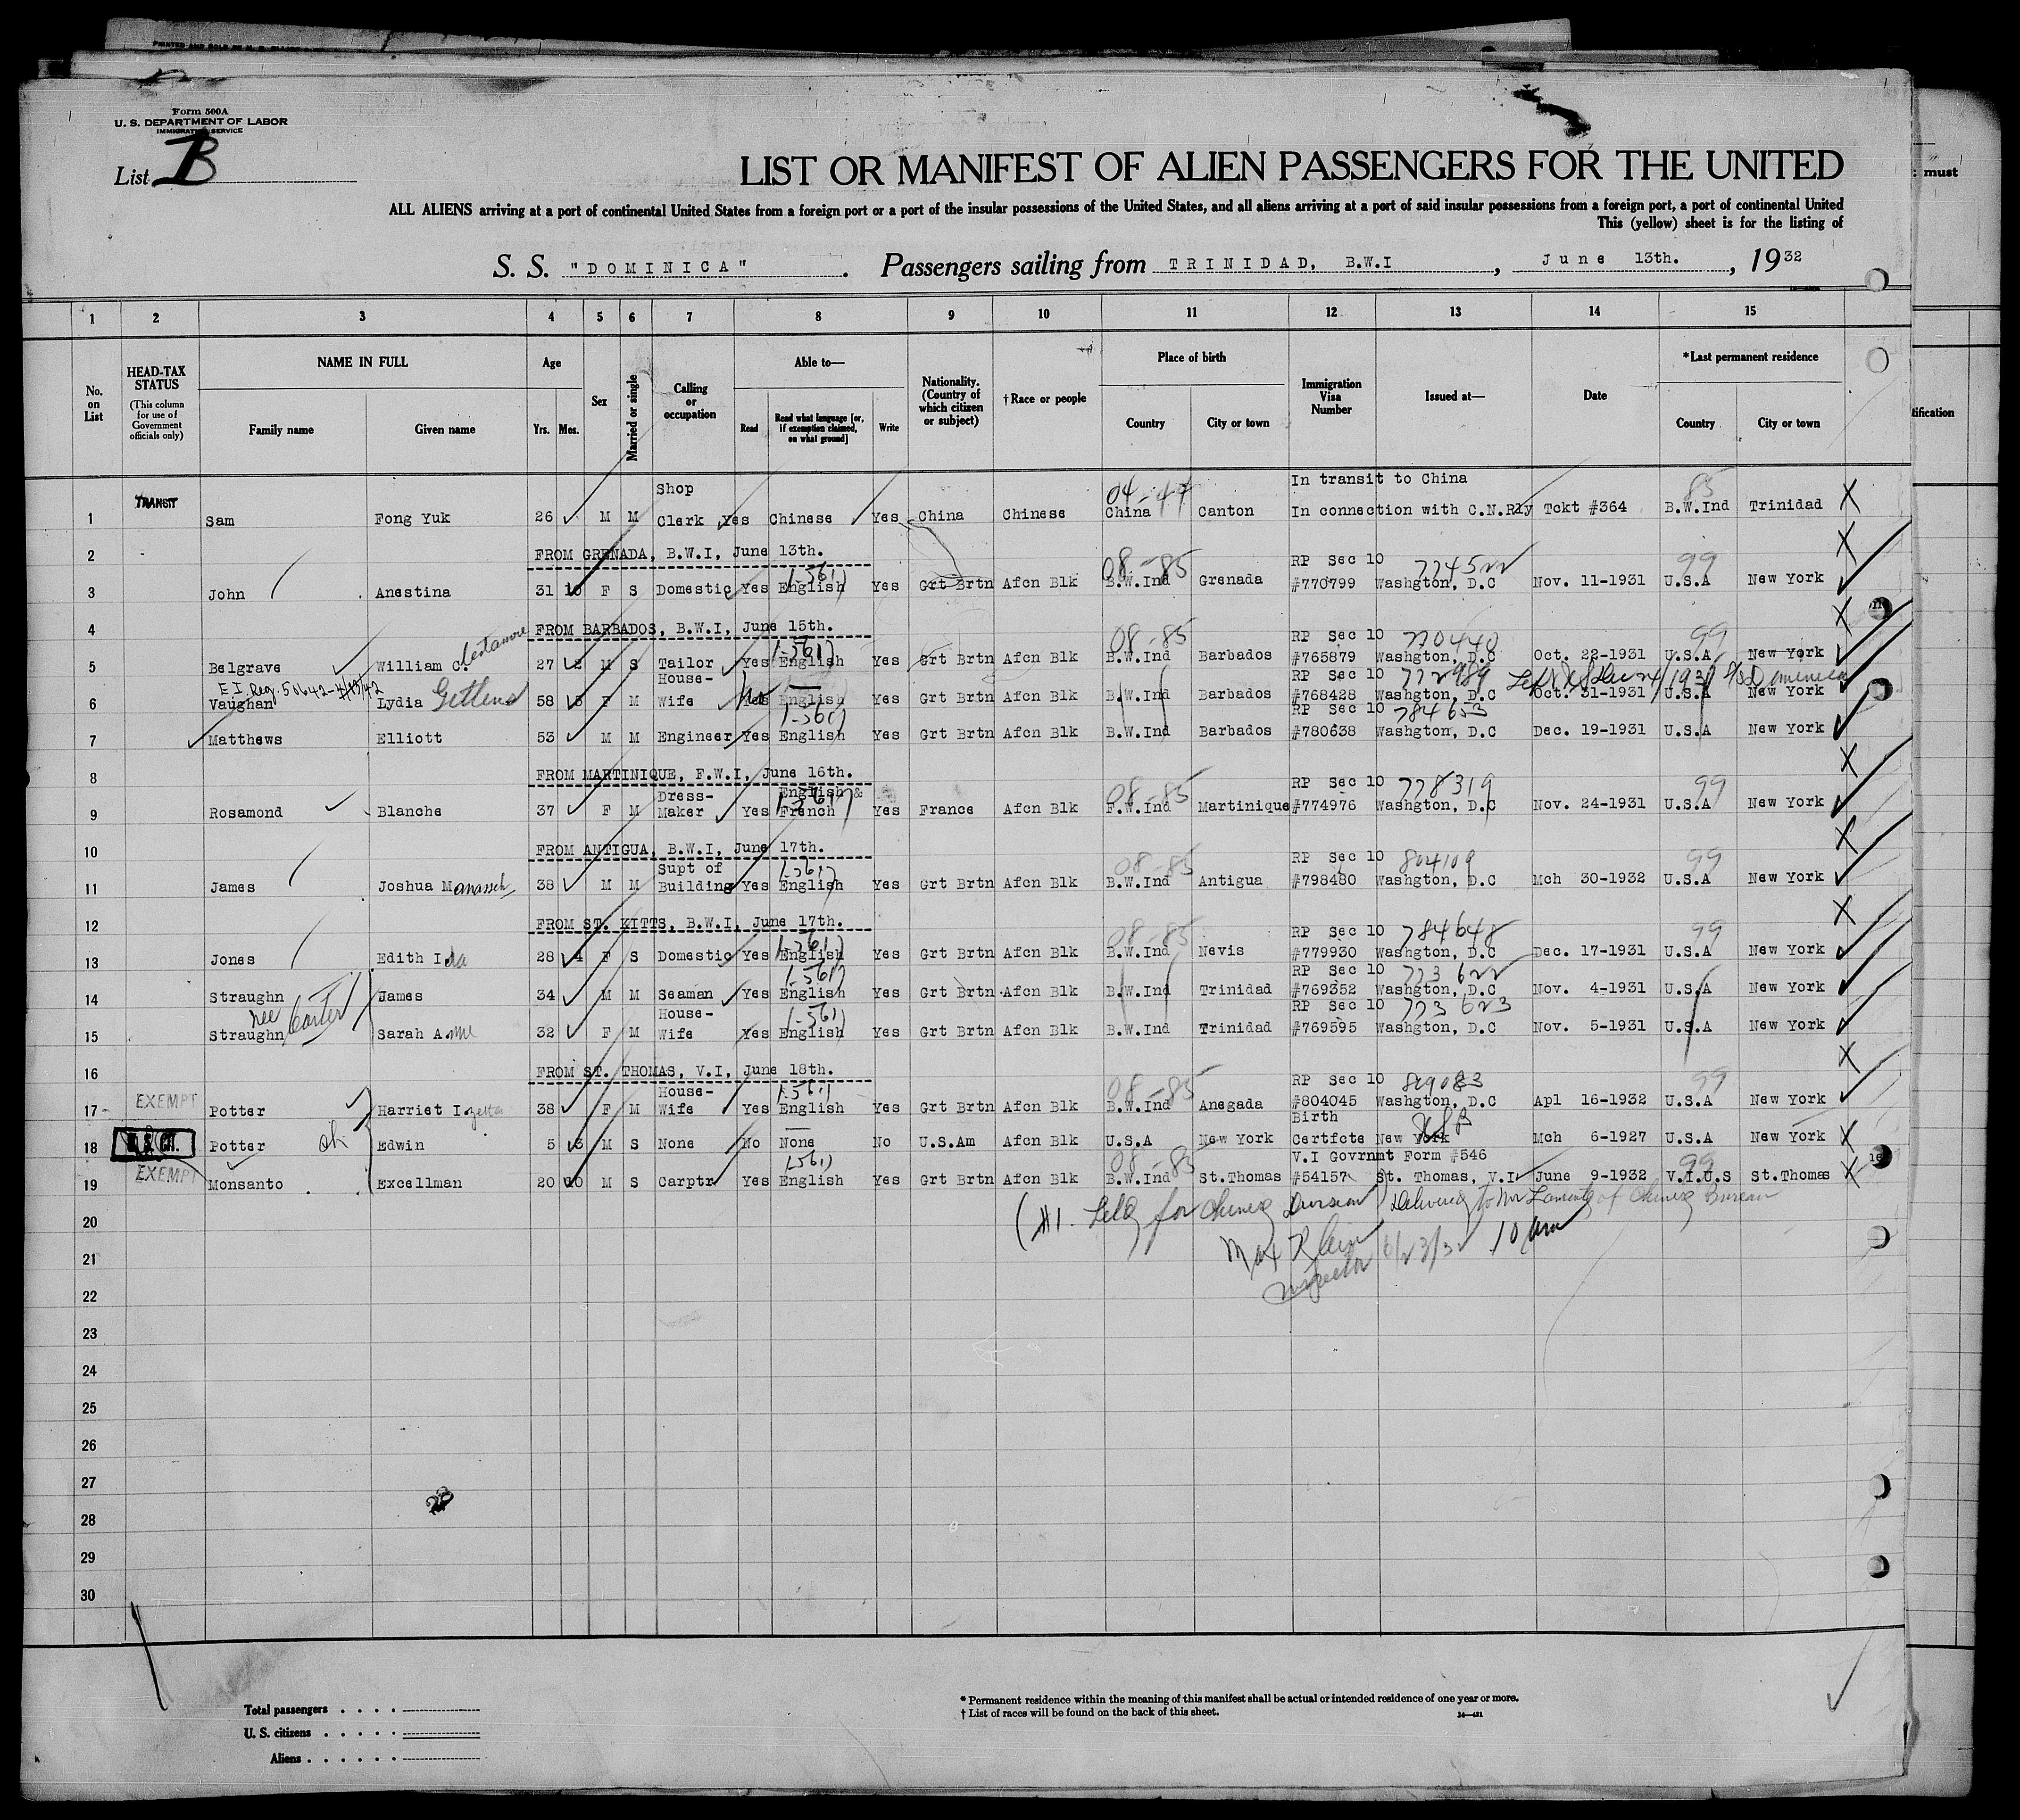 PRINTED AND SOLD BY
Form 500A
U. S. DEPARTMENT OF LABOR
IMMIGRATION SERVICE
List B
must
LIST OR MANIFEST OF ALIEN PASSENGERS FOR THE UNITED
ALL ALIENS arriving at a port of continental United States from a foreign port or a port of the insular possessions of the United States, and all aliens arriving at a port of said insular possessions from a foreign port, a port of continental United
This (yellow) sheet is for the listing of
S. S. "DOMINICA". Passengers sailing from TRINIDAD, B.W.I, June 13th., 1932
1 2 3 4 5 6 7 8 9 10 11 12 13 14 15
No. on List
HEAD-TAX STATUS
(This column for use of Government officials only)
NAME IN FULL
Family name Given name
Age
Yrs. Mos.
Sex
Married or single
Calling or occupation
Able to—
Read Read what language [or, if exemption claimed, on what ground] Write
Nationality. (Country of which citizen or subject)
† Race or people
Place of birth
Country City or town
Immigration Visa Number
Issued at—
Date
*Last permanent residence
Country City or town
tification
TRANSIT Shop 04-44 In transit to China 85
1 Sam Fong Yuk 26 M M Clerk Yes Chinese Yes China Chinese China Canton In connection with C.N.Rly Tckt #364 B.W.Ind Trinidad X
2 FROM GRENADA, B.W.I, June 13th. X
1-561) 08-85 RP Sec 10 774522 99
3 John Anestina 31 10 F S Domestic Yes English Yes Grt Brtn Afcn Blk B.W.Ind Grenada #770799 Washgton, D.C Nov. 11-1931 U.S.A New York
4 FROM BARBADOS, B.W.I, June 15th. X
1-561) 08-85 RP Sec 10 770448 99
5 Belgrave William C. 27 2 M S Tailor Yes English Yes Grt Brtn Afcn Blk B.W.Ind Barbados #765879 Washgton, D.C Oct. 22-1931 U.S.A New York
E.I. Reg. 50642- House- RP Sec 10 772989
6 Vaughan Lydia Gittens 58 3 F M Wife Yes No English Yes Grt Brtn Afcn Blk B.W.Ind Barbados #768428 Washgton, D.C Oct. 31-1931 U.S.A New York
1-561) RP Sec 10 784653
7 Matthews Elliott 53 M M Engineer Yes English Yes Grt Brtn Afcn Blk B.W.Ind Barbados #780638 Washgton, D.C Dec. 19-1931 U.S.A New York
8 FROM MARTINIQUE, F.W.I, June 16th. X
Dress- English & 1-561) 08-85 RP Sec 10 778319 99
9 Rosamond Blanche 37 F M Maker Yes French Yes France Afcn Blk F.W.Ind Martinique #774976 Washgton, D.C Nov. 24-1931 U.S.A New York
10 FROM ANTIGUA, B.W.I, June 17th. X
Supt of 1-561) 08-85 RP Sec 10 804109 99
11 James Joshua Manasseh 38 M M Building Yes English Yes Grt Brtn Afcn Blk B.W.Ind Antigua #798480 Washgton, D.C Mch 30-1932 U.S.A New York
12 FROM ST. KITTS, B.W.I, June 17th. X
1-561) 08-85 RP Sec 10 784648 99
13 Jones Edith Ida 28 4 F S Domestic Yes English Yes Grt Brtn Afcn Blk B.W.Ind Nevis #779930 Washgton, D.C Dec. 17-1931 U.S.A New York
1-561) RP Sec 10 773622
14 Straughn James 34 M M Seaman Yes English Yes Grt Brtn Afcn Blk B.W.Ind Trinidad #769352 Washgton, D.C Nov. 4-1931 U.S.A New York
nee Carter House- 1-561) RP Sec 10 773623
15 Straughn Sarah Anne 32 F M Wife Yes English Yes Grt Brtn Afcn Blk B.W.Ind Trinidad #769595 Washgton, D.C Nov. 5-1931 U.S.A New York
16 FROM ST. THOMAS, V.I, June 18th. X
EXEMPT House- 1-561) 08-85 RP Sec 10 809083 99
17 Potter Harriet Izetta 38 F M Wife Yes English Yes Grt Brtn Afcn Blk B.W.Ind Anegada #804045 Washgton, D.C Apl 16-1932 U.S.A New York
Birth
18 U.S. CIT. Potter ok Edwin 5 3 M S None No None No U.S.Am Afcn Blk U.S.A New York Certfcte New York Mch 6-1927 U.S.A New York X
EXEMPT 1-561) 08-85 V.I Govrnmt Form #546 99
19 Monsanto Excellman 20 10 M S Carptr Yes English Yes Grt Brtn Afcn Blk B.W.Ind St.Thomas #54157 St. Thomas, V.I June 9-1932 V.I.U.S St.Thomas X
20 (#1. Held for Chinese Division) Delivered to Mr of Chinese Bureau
21 Max Klein 6/23/32 10 am
22 Inspector
23
24
25
26
27
28
29
30
Total passengers
U. S. citizens
Aliens
* Permanent residence within the meaning of this manifest shall be actual or intended residence of one year or more.
† List of races will be found on the back of this sheet.
14—421